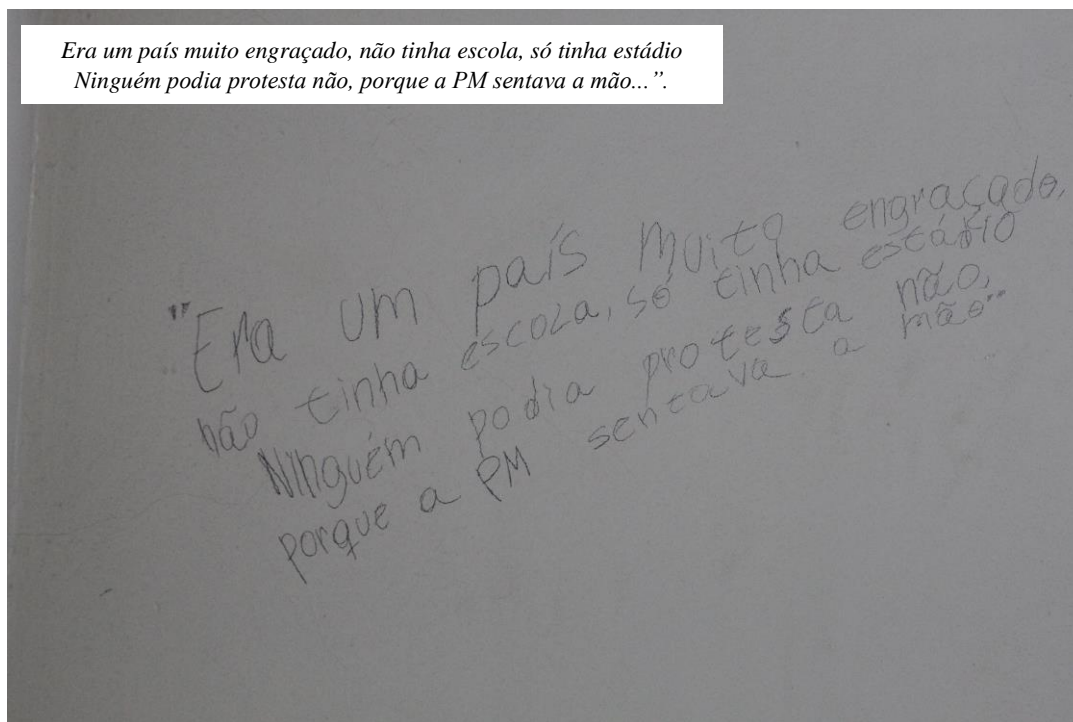 Era um país muito engraçado, não tinha escola, só tinha estádio
Ninguém podia protesta não, porque a PM sentava a mão...”.
"Era um país muito engraçado,
não tinha escola, só tinha estádio
Ninguém podia protesta não,
porque a PM sentava a mão"